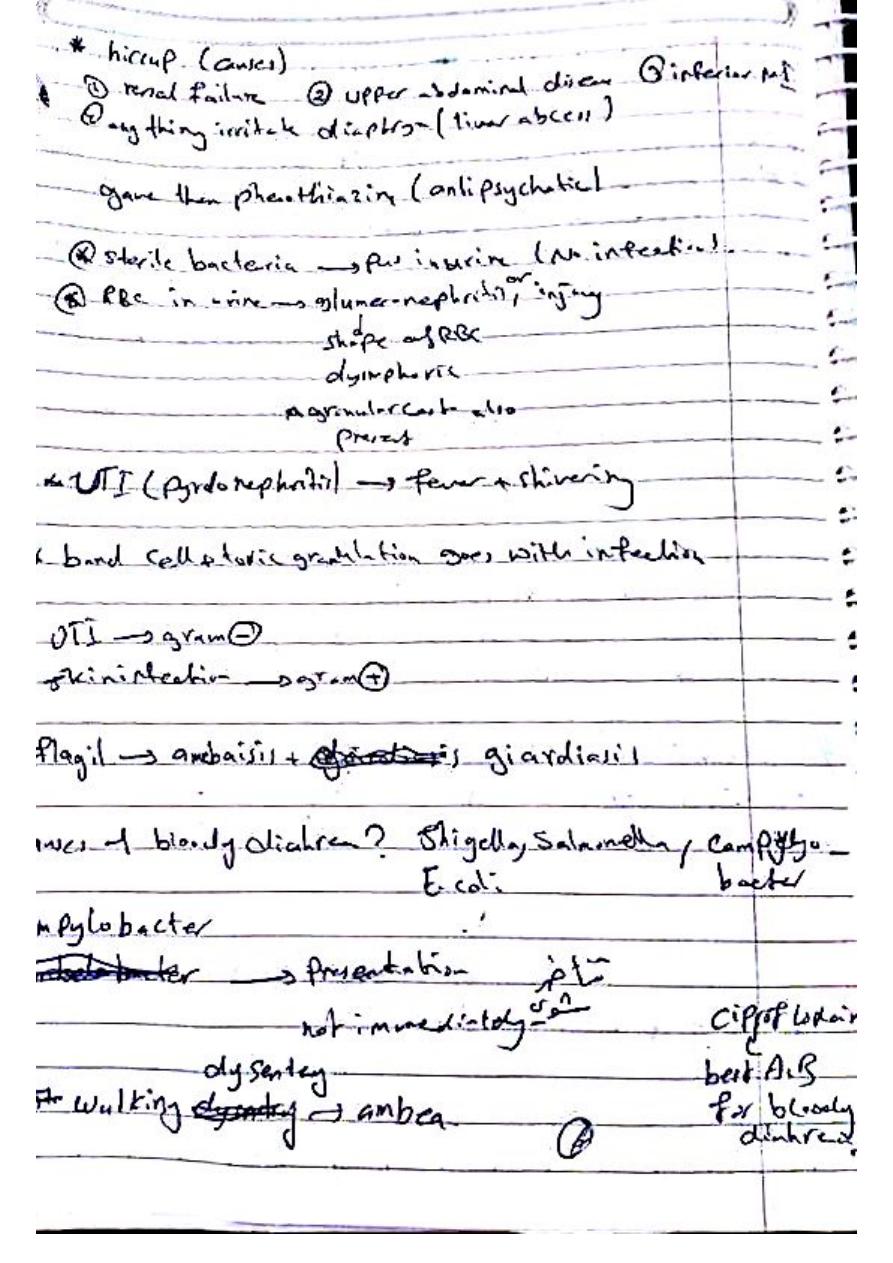 * hiccup (causes)
① renal failure ② upper abdominal disease ③ inferior MI
④ any thing irritate diaphragm (liver abcess)
gave them phenothiazing (antipsychotic)
* sterile bacteria → pus in urine (No infection).
* RBC in urine → glumer-nephritis, or injury
shape of RBC
dysmphoric
granular cast also
present
* UTI (pyrdonephritis) → fever + shivering
* band cell & toxic granulation goes with infection
UTI → gram ⊖
skin infection → gram ⊕
flagil → ambaisis + giardiasis
bloody diahrea? Shigella, Salmonella, Campylo-
E. coli bacter
mpylobacter
→ Presentation متأخر
not immediately
Ciprofloxain
dysentey best A.B
* walking → ambea for bloody
diahrea.